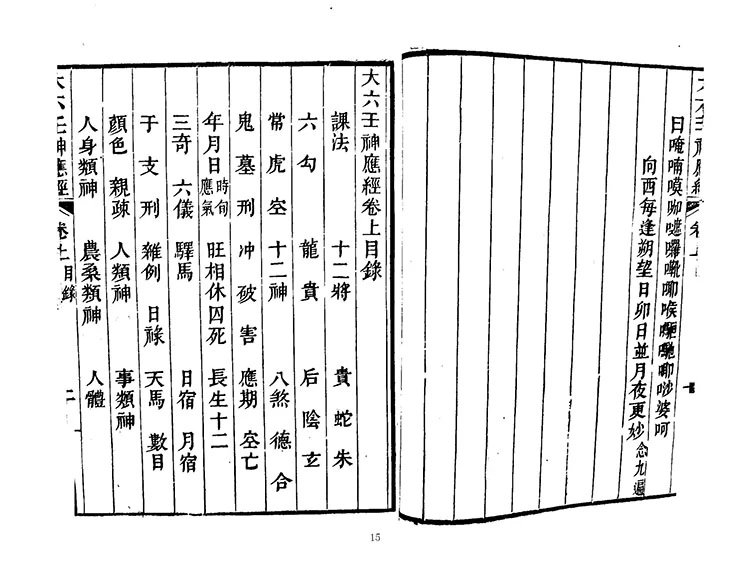 曰唵喃嘆𠺁
向西每逢朔望日卯日並月夜更妙念九遍
大六壬神應經卷上目錄
課法 十二將 貴 蛇 朱
六 勾 龍 貴 后 陰 玄
常 虎 空 十二神 八煞 德 合
鬼 墓 刑 冲 破 害 應期 空亡
年月日時旬應氣 旺相休囚死 長生十二
三奇 六儀 驛馬 日宿 月宿
干 支 刑 雜例 日祿 天馬 數目
顏色 親疎 人類神 事類神
人身類神 農桑類神 人體
大六壬神應經 卷上目錄 二
15